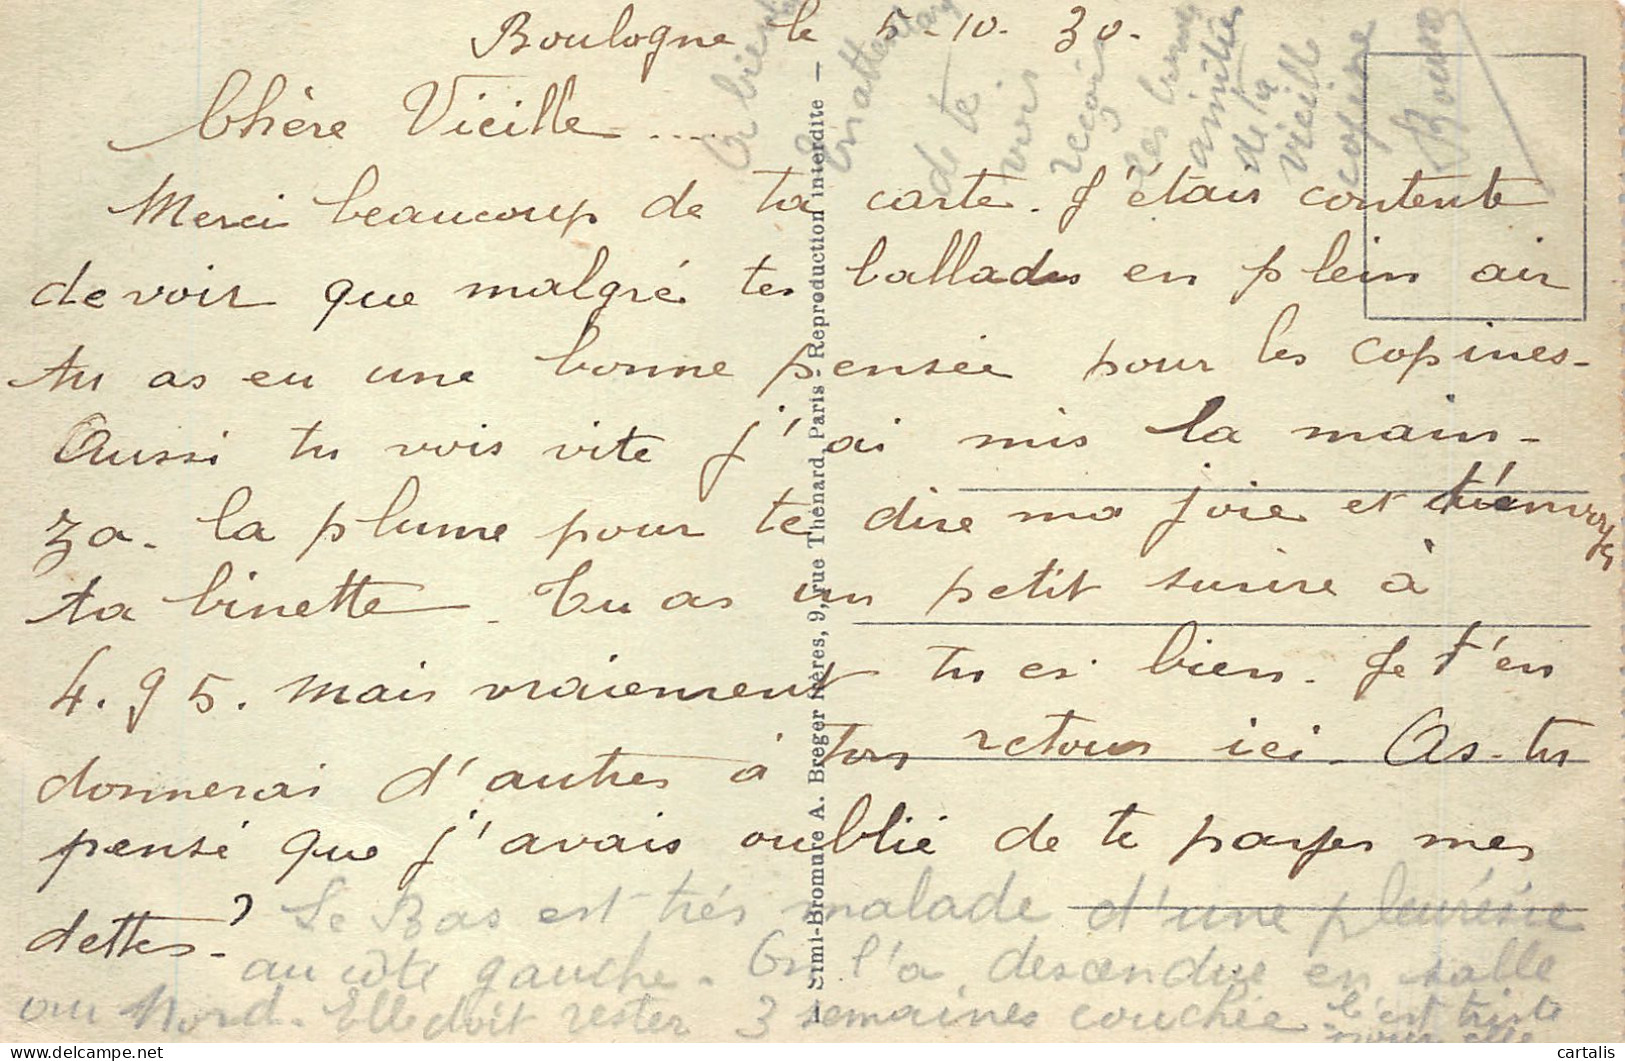 Boulogne le 5-10-30.
Chère Vieille ....
Merci beaucoup de ta carte. J'étais contente
de voir que malgré tes ballades en plein air
tu as eu une bonne pensée pour les copines-
Aussi tu vois vite j'ai mis la main-
à la plume pour te dire ma joie et
ta binette. Tu as un petit sourire à
4.95. Mais vraiement tu es bien. Je t'en
donnerai d'autres à ton retour ici. As-tu
pensé que j'avais oublié de te payer mes
dettes?
Le Bas est très malade d'une pleurésie
au côté gauche. On l'a descendue en salle
au Nord. Elle doit rester 3 semaines couchée
c'est triste
pour elle
En attendant
de te
voir
reçois
les bonnes
amitiés
de ta
vieille
copine
Semi-Bromure A. Breger frères, 9, rue Thénard, Paris - Reproduction interdite -
cartalis